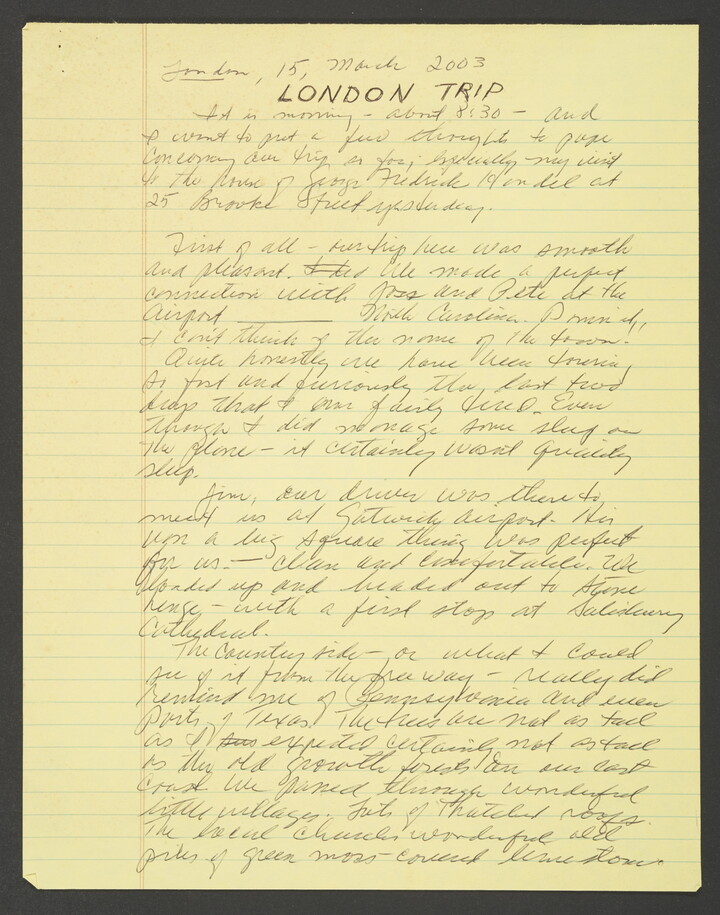 London, 15, March 2003
LONDON TRIP
It is morning - about 8:30 - and
I want to put a few thoughts to page
concerning our trip so far, especially my visit
to the house of George Fredrick Handel at
25 Brooke Street yesterday.
First of all - our trip here was smooth
and pleasant. We made a perfect
connection with Joss and Pete at the
Airport ________ North Carolina. Dammit,
I can't think of the name of the town.
Quite honestly we have been touring
so fast and furiously the last two
days that I am fairly tired. Even
through I did manage some sleep on
the plane - it certainly wasn't quality
sleep.
Jim, our driver was there to
meet us at Gatwick airport. His
van a big square thing was perfect
for us. - clean and comfortable. We
loaded up and headed out to Stone
henge - with a first stop at Salisbury
Cathedral.
The country side - or what I could
see of it from the free way - really did
remind me of Pennsylvania and even
parts of Texas. The trees are not as tall
as I expected certainly not as tall
as the old growth forests on our east
coast. We passed through wonderful
little villages. Lots of thatched roofs.
The local churches wonderful old
piles of green moss-covered limestone